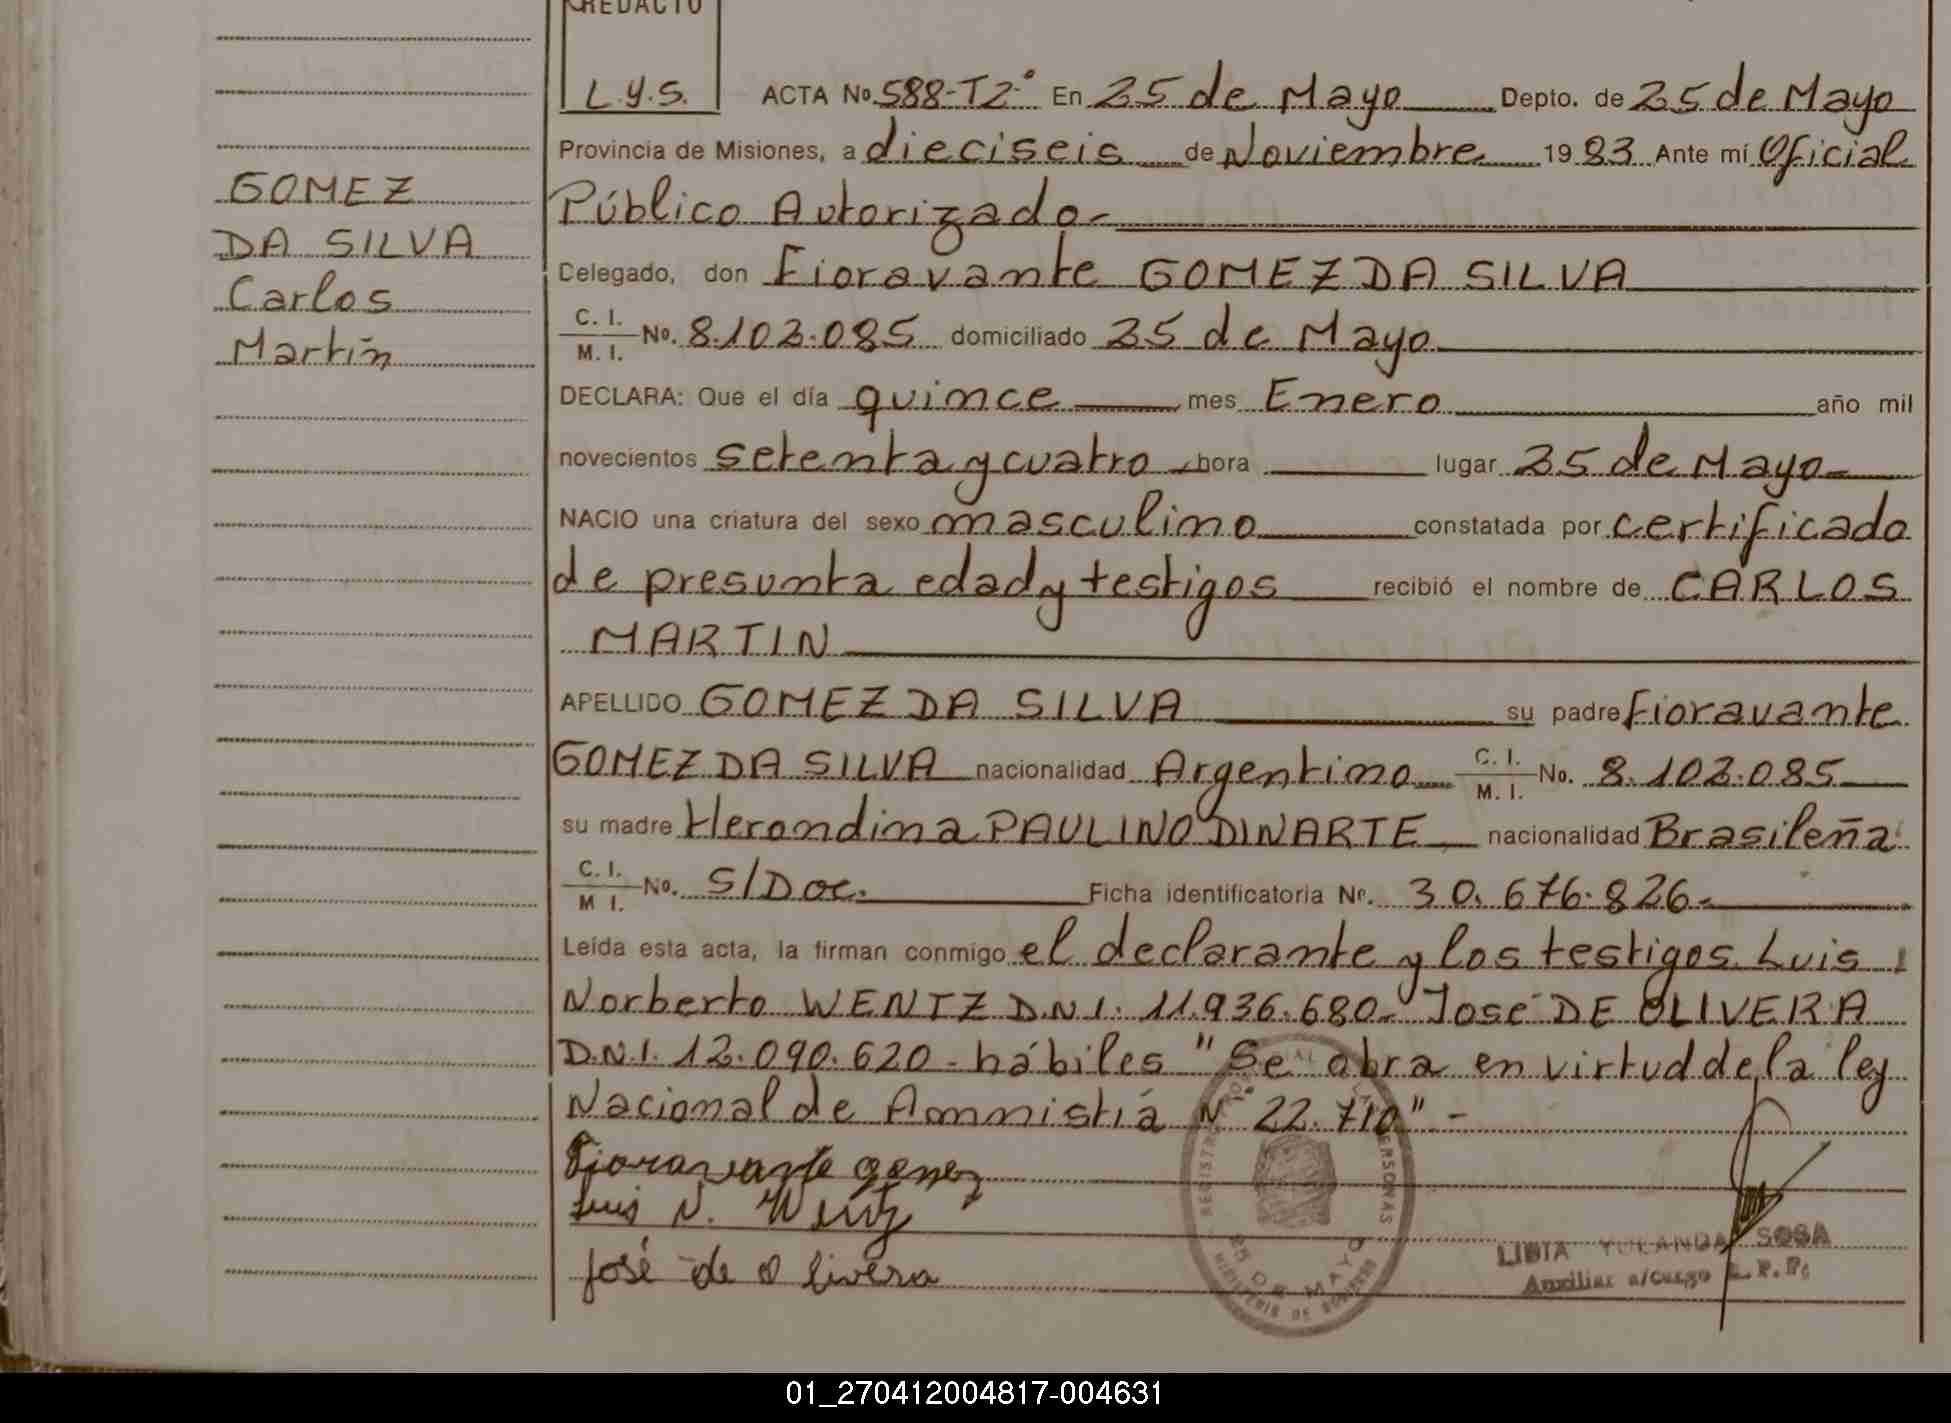 REDACTO
L.Y.S.
ACTA No. 588-T2° En 25 de Mayo Depto. de 25 de Mayo
Provincia de Misiones, a dieciseis de Noviembre 1983 Ante mí Oficial
Público Autorizado-
Celegado, don Fioravante GOMEZ DA SILVA
C. I.
M. I. No. 8.102.085 domiciliado 25 de Mayo
DECLARA: Que el día quince mes Enero año mil
novecientos setenta y cuatro hora lugar 25 de Mayo-
NACIO una criatura del sexo masculino constatada por certificado
de presunta edad y testigos recibió el nombre de CARLOS
MARTIN
APELLIDO GOMEZ DA SILVA su padre Fioravante
GOMEZ DA SILVA nacionalidad Argentino C. I. M. I. No. 8.102.085
su madre Herondina PAULINO DINARTE nacionalidad Brasileña
C. I.
M I. No. S/Doc. Ficha identificatoria Nº. 30.676.826-
Leída esta acta, la firman conmigo el declarante y los testigos Luis
Norberto WENTZ D.N.I. 11.936.680- José DE OLIVERA
D.N.I. 12.090.620- hábiles "Se obra en virtud de la ley
Nacional de Amnistiá N° 22.710" -
Fioravante gomez
Luis N. Wentz
José de Olivera
GOMEZ
DA SILVA
Carlos
Martín
25 DE MAYO
MINISTERIO DE GOBIERNO
LIBIA YOLANDA SOSA
Auxiliar a/cargo R.P.P.
01_270412004817-004631